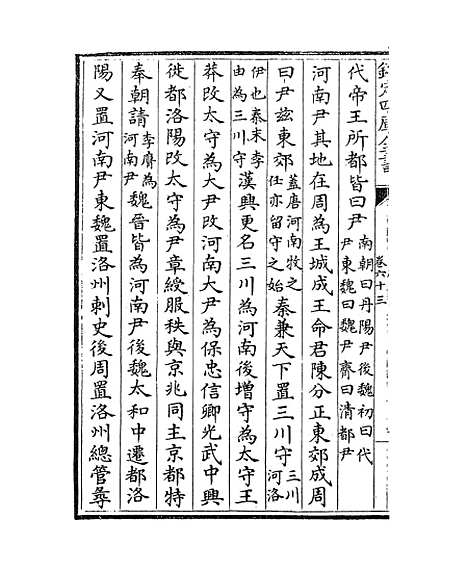 欽定四庫全書
卷六十三
代帝王所都皆曰尹南朝曰丹陽尹後魏初曰代尹東魏曰魏尹齊曰清都尹
河南尹其地在周為王城成王命君陳分正東郊成周
曰尹茲東郊蓋唐河南牧之任亦留守之始秦兼天下置三川守三川河洛
伊也秦末李由為三川守漢興更名三川為河南後增守為太守王
莽改太守為大尹改河南大尹為保忠信卿光武中興
徙都洛陽改太守為尹章綬服秩與京兆同主京都特
奉朝請李膺為河南尹魏晉皆為河南尹後魏太和中遷都洛
陽又置河南尹東魏置洛州刺史後周置洛州總管尋